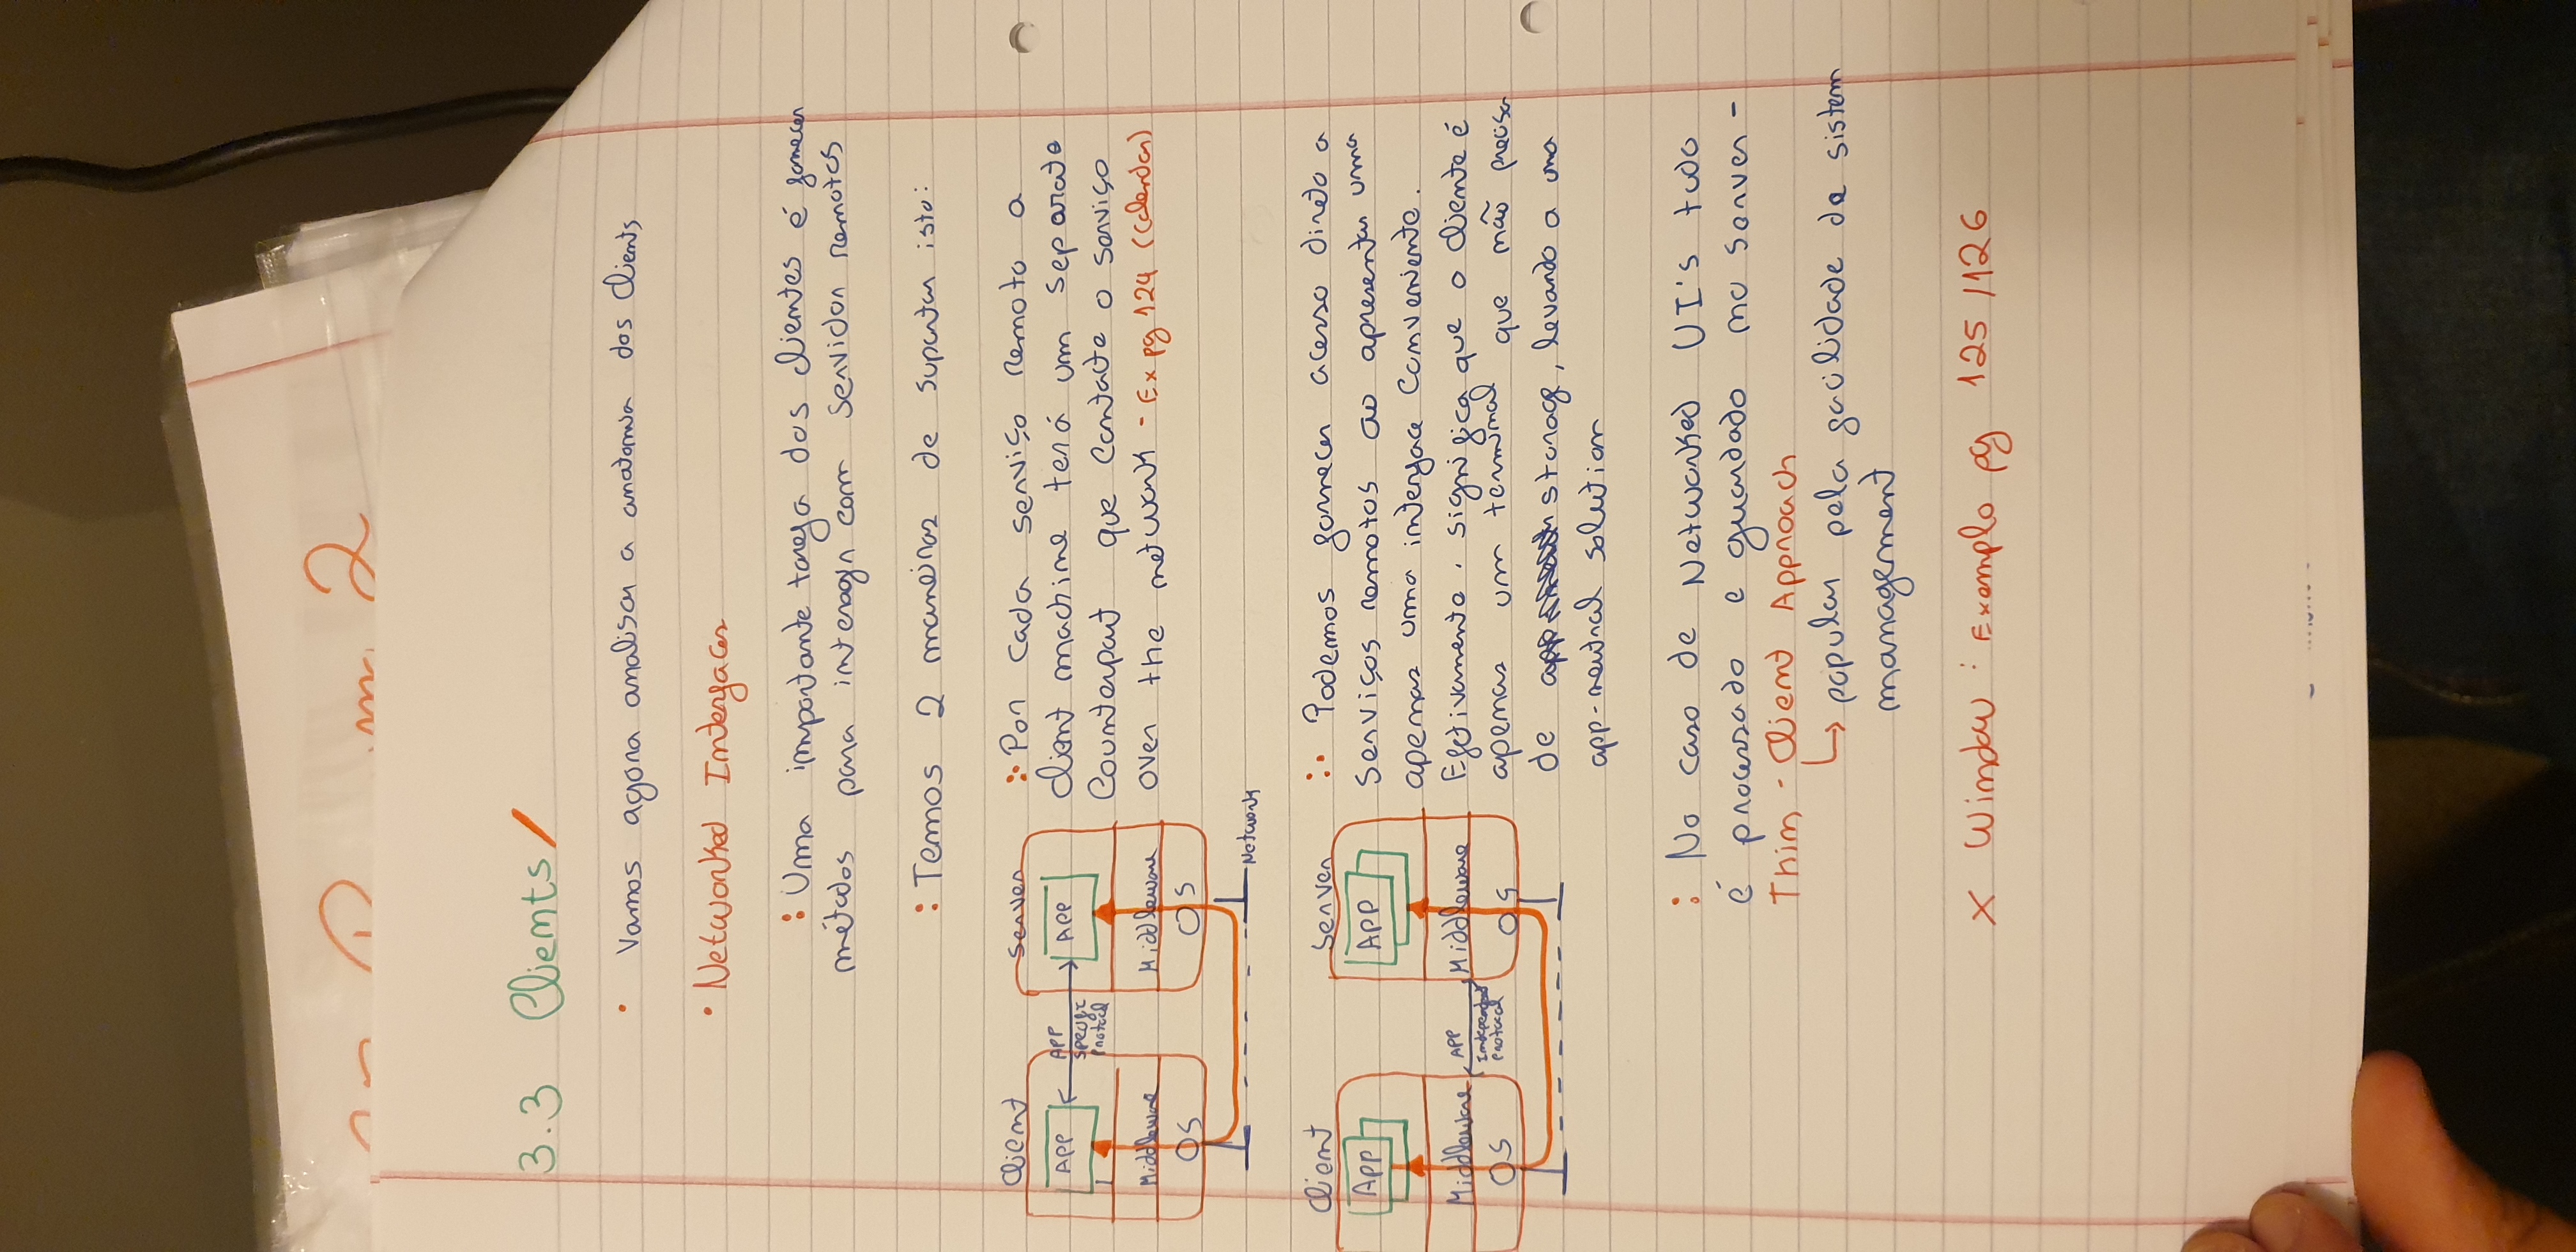 2
3.3 Clients
• Vamos agora analisar a anatomia dos Clients
• Networked Interfaces
: Uma importante tarefa dos clientes é fornecer
métodos para interagir com servidor remotos
: Temos 2 maneiras de suportar isto:
Client Server
APP APP APP
Specific
Protocol
Middleware Middleware
OS OS
Network
:• Por cada serviço remoto a
client machine terá um separate
Counterpart que contacte o serviço
over the network - Ex pg 124 (Calendar)
Client Server
App APP
Middleware APP Middleware
Independent
Protocol
OS OS
:• Podemos fornecer acesso direto a
serviços remotos ao apresentar uma
apenas uma interface conveniente.
Efetivamente. significa que o cliente é
apenas um terminal que não precisa
de storage, levando a uma
app-neutral solution
: No caso de Networked UI's tudo
é processado e guardado no server -
Thin - Client Approach
↳ popular pela facilidade de sistem
management
X Window : Exemplo pg 125/126